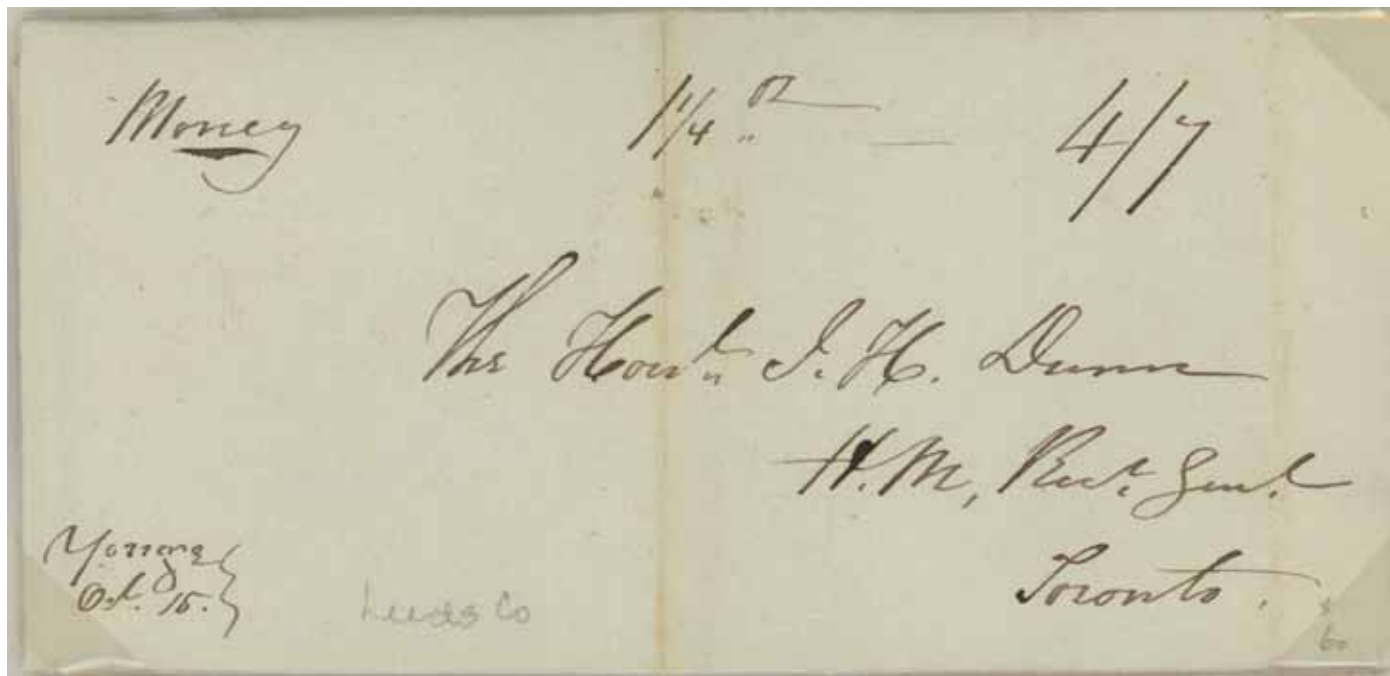 Money 1 1/4 oz — 4/7
The Honl. J. H. Dunn
H. M, Recr. Genl.
Toronto.
Yonge
Oct. 15.
Leeds Co
60